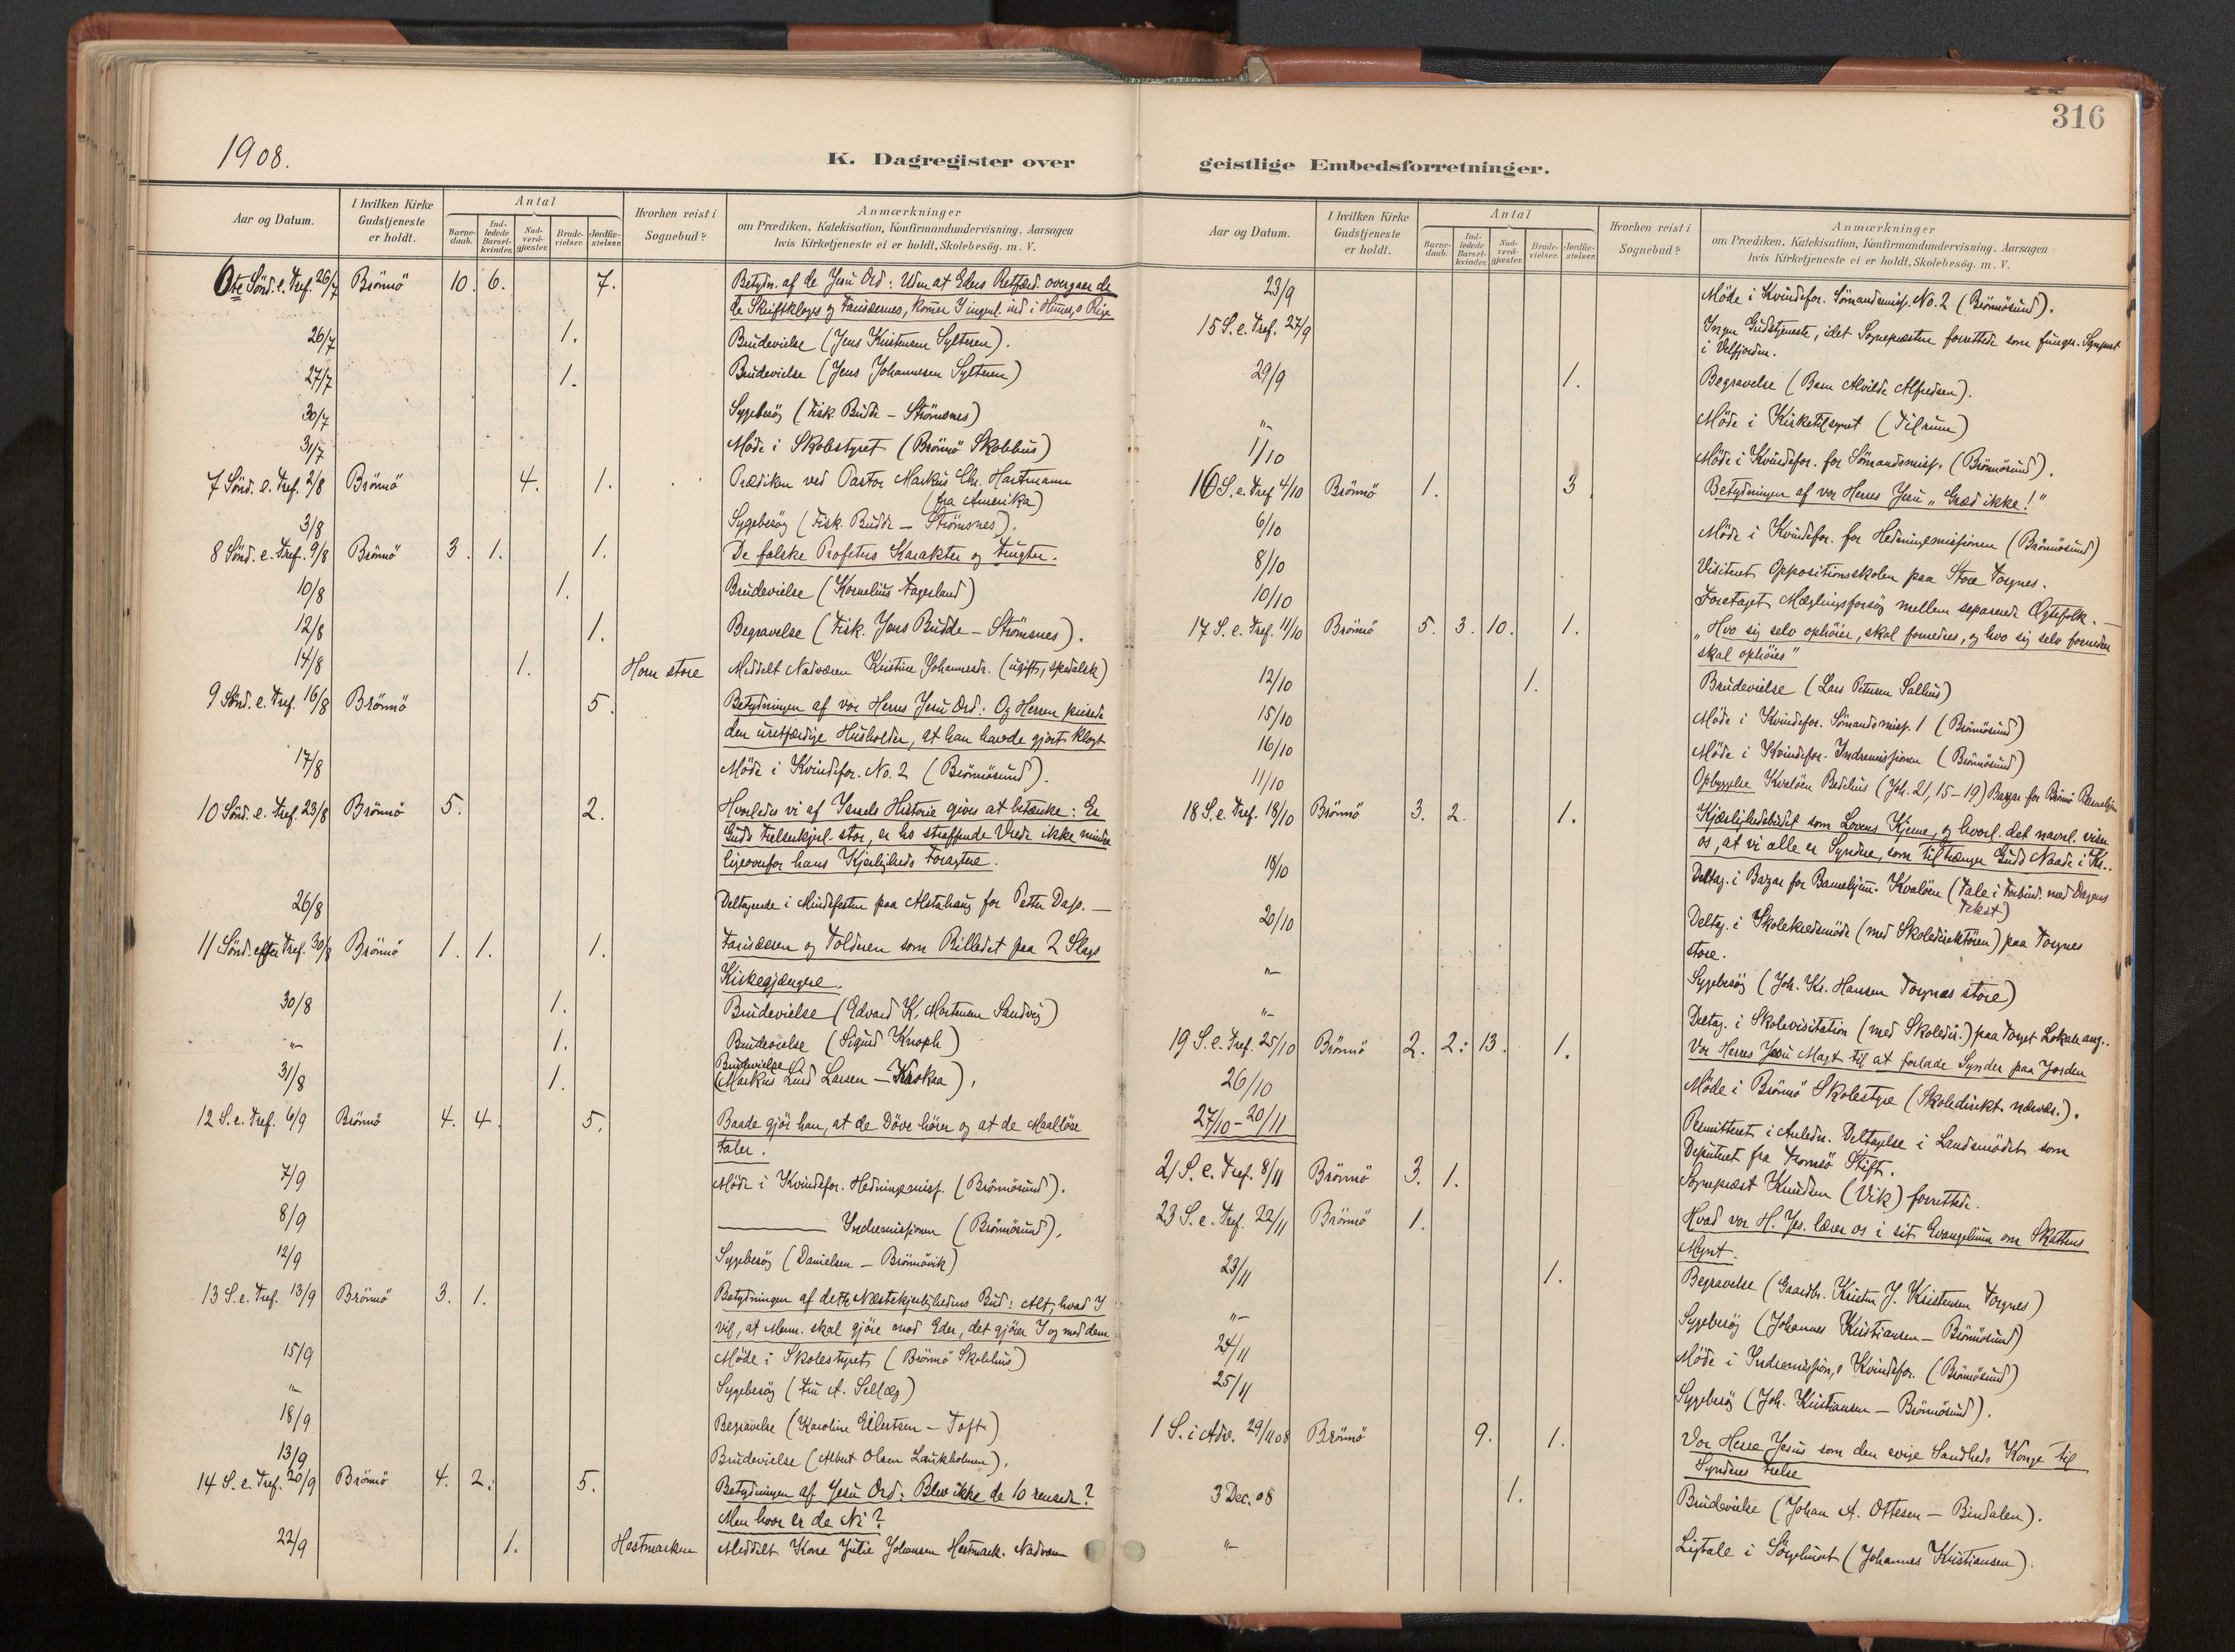 316
1908.
K. Dagregister over
geistlige Embedsforretninger.
Aar og Datum.
I hvilken Kirke Gudstjeneste er holdt.
Antal
Barne-daab.
Ind-ledede Barsel-kvinder.
Nad-verd-gjæster.
Brude-vielser.
Jordfæ-stelser.
Hvorhen reist i Sognebud?
Anmærkninger
om Prædiken, Katekisation, Konfirmandundervisning. Aarsagen
hvis Kirketjeneste ei er holdt. Skolebesög. m. V.
6te Sönd. e. Tref. 26/7 Brönnö 10. 6. 7. Betydn. af de Jesu Ord: Uden at Eders Retfærd. overgaar de
de Skriftkloges og Farisæernes, kommer I ingenl. ind i Himm.s Rige
26/7 1. Brudevielse (Jens Kristensen Sylteren).
27/7 1. Brudevielse (Jens Johannesen Sylteren)
30/7 Sygebesög (Fisk. Budde – Strömsnes)
31/7 Möde i Skolestyret (Brönnö Skolehus)
7 Sönd. e. Tref. 2/8 Brönnö 4. 1. Prædiken ved Pastor Markus Chr. Hartmann
(fra Amerika)
3/8 Sygebesög (Fisk. Budde – Strömsnes).
8 Sönd. e. Tref. 9/8 Brönnö 3. 1. 1. De falske Profeters Karakter og Frugter.
10/8 1. Brudevielse (Kornelius Fagerland)
12/8 1. Begravelse (Fisk. Jens Budde – Strömsnes).
14/8 1. Horn store Meddelt Nadveren Kristine Johannesdr. (ugift, spedalsk)
9 Sönd. e. Tref. 16/8 Brönnö 5. Betydningen af vor Herres Jesu Ord: Og Herren priste
den uretfærdige Husholder, at han havde gjort klogt
17/8 Möde i Kvindefor. No. 2 (Brönnösund).
10 Sönd. e. Tref. 23/8 Brönnö 5. 2. Hvorledes vi af Israels Historie gives at betænke: Er
Guds Frelserkjærl. stor, er ho straffende Vrede ikke mindre
ligeoverfor hans Kjærligheds Foragtere.
26/8 Deltagende i Mindefesten paa Alstahaug for Petter Dass. –
11 Sönd. efter Tref. 30/8 Brönnö 1. 1. 1. Farisæeren og Tolderen som Billedet paa 2 Slags
Kirkegjængere.
30/8 1. Brudevielse (Edvard K. Mortensen Sandvig)
"- 1. Brudevielse (Sigurd Knoph)
31/8 1. Brudevielse
(Markus Lind Larsen – Krokaa).
12 S. e. Tref. 6/9 Brönnö 4. 4. 5. Baade gjör han, at de Döve hörer og at de Maallöse
taler.
7/9 Möde i Kvindefor. Hedningemiss. (Brönnösund).
8/9 ——— Indremissionen (Brönnösund).
12/9 Sygebesög (Danielsen – Brönnövik)
13 S. e. Tref. 13/9 Brönnö 3. 1. Betydningen af dette Næstekjærlighedens Bud: Alt, hvad I
vil, at Menn. skal gjöre mod Eder, det gjörer I og mod dem
15/9 Möde i Skolestyret (Brönnö Skolehus)
"- Sygebesög (Fru A. Selfæg)
18/9 Begravelse (Karoline Eilertsen – Toft)
13/9 Brudevielse (Albert Olsen Laukholmen).
14 S. e. Tref. 20/9 Brönnö 4. 2. 5. Betydningen af Jesu Ord: Blev ikke de 10 rensede?
Men hvor er de Ni?
22/9 1. Hestmarken Meddelt Kone Julie Johansen Hestmark. Nadveren
Aar og Datum.
I hvilken Kirke Gudstjeneste er holdt.
Antal
Barne-daab.
Ind-ledede Barsel-kvinder.
Nad-verd-gjæster.
Brude-vielser.
Jordfæ-stelser.
Hvorhen reist i Sognebud?
Anmærkninger
om Prædiken, Katekisation, Konfirmandundervisning. Aarsagen
hvis Kirketjeneste ei er holdt. Skolebesög. m. V.
23/9 Möde i Kvindefor. Sömandsmiss. No. 2 (Brönnösund).
15 S. e. Tref. 27/9 Ingen Gudstjeneste, idet Sognepræsten forrettede som funger. Sognepræst
i Velfjorden.
29/9 1. Begravelse (Barn Alvilde Alfredsen).
"- Möde i Kirketilsynet (Tilrum)
1/10 Möde i Kvindefor. for Sömandsmiss. (Brönnösund).
16 S. e. Tref 4/10 Brönnö 1. 3 Betydningen af vor Herres Jesu „Græd ikke!"
6/10 Möde i Kvindefor. for Hedningemissionen (Brönnösund)
8/10 Visiteret Oppositionsskolen paa Store Torgnes.
10/10 Foretaget Mæglingsforsög mellem separerede Ægtefolk. –
17 S. e. Tref. 11/10 Brönnö 5. 3. 10. 1. „Hvo sig selv ophöier, skal fornedres, og hvo sig selv fornedrer
skal ophöies"
12/10 1. Brudevielse (Lars Petersen Salhus)
15/10 Möde i Kvindefor. Sömandsmiss. 1 (Brönnösund)
16/10 Möde i Kvindefor. Indremissionen (Brönnösund)
11/10 Opbyggelse Kvalöen Bedehus (Joh. 21, 15–19) Bazar for Brönnö Barnehjem
18 S. e. Tref. 18/10 Brönnö 3. 2. 1. Kjærlighedsbudet som Lovens Kjerne, og hvorl. det navnl. viser
os, at vi alle er Syndere, som tiltrænger Guds Naade i Kr..
18/10 Deltag. i Bazar for Barnehjem. Kvalöen (Tale i Forbind. med Dagens
Tekst)
20/10 Deltag. i Skolekredsmöde (med Skoledirektören) paa Torgnes
store.
"- Sygebesög (Joh. Kr. Hansen Torgnes store)
"- Deltag. i Skolevisitation (med Skoledir.) paa Torget Lokale ang..
19 S. e. Tref. 25/10 Brönnö 2. 2. 13. 1. Vor Herres Jesu Magt til at forlade Synder paa Jorden
26/10 Möde i Brönnö Skolestyre (Skoledirekt. nærvær.).
27/10 – 20/11 Permitteret i Anledn. Deltagelse i Landsmödet som
Deputeret fra Tromsö Stift.
21 S. e. Tref. 8/11 Brönnö 3. 1. Sognepræst Knudsen (Vik) forrettede.
23 S. e. Tref. 22/11 Brönnö 1. Hvad vor H. Jes. lærer os i sit Evangelium om Skattens
Mynt.
23/11 1. Begravelse (Gaardbr. Kristen J. Kristensen Torgnes)
"- Sygebesög (Johannes Kristiansen – Brönnösund)
24/11 Möde i Indremission.s Kvindefor. (Brönnösund)
25/11 Sygebesög (Joh. Kristiansen – Brönnösund).
1 S. i Adv. 29/11 08 Brönnö 9. 1. Vor Herre Jesus som den evige Sandheds Konge til
Synderes Frelse
3 Dec. 08 1. Brudevielse (Johan A. Ottesen – Bindalen).
"- Ligtale i Sörgehuset (Johannes Kristiansen).